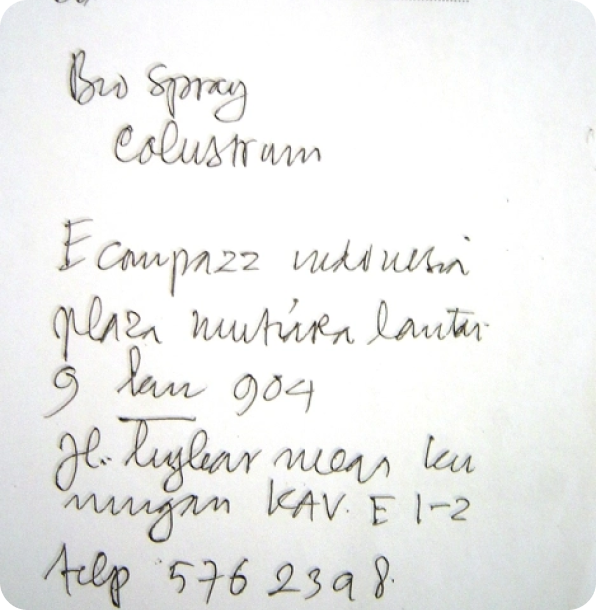 Bio Spray
Colustrum
Ecompazz indonesia
plaza mutiara lantai
9 904
Jl. lingkar mega ku
ningan KAV. E 1-2
telp 576 2398.